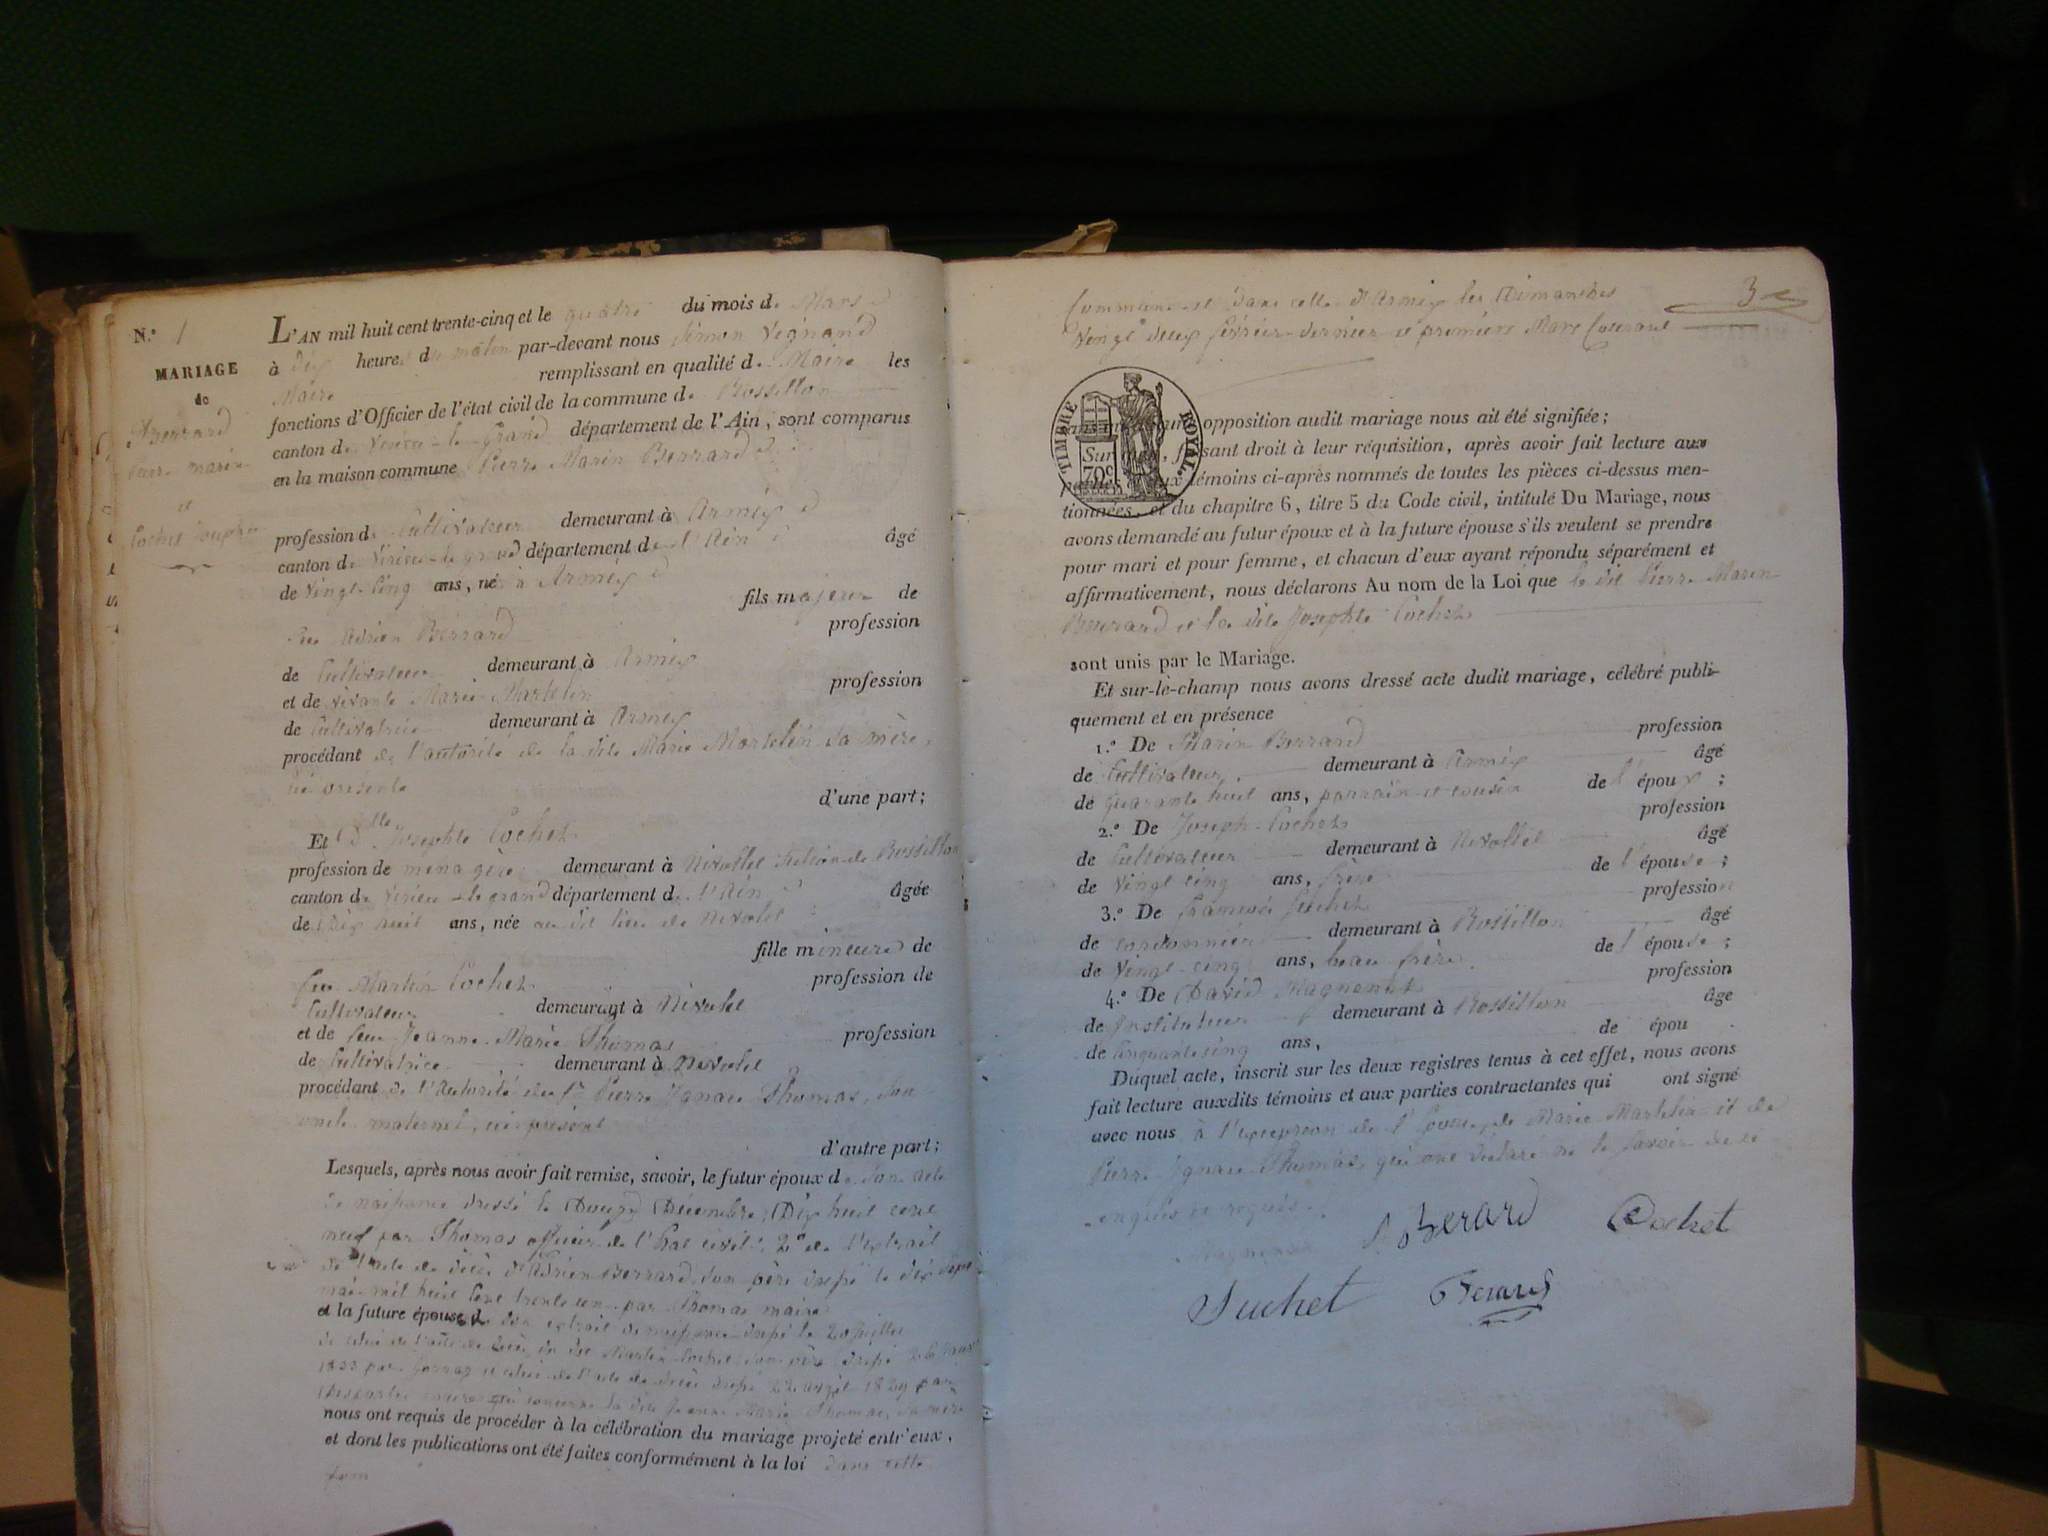 N.° 1
MARIAGE
de
Berrard
Pierre marin
et
Cochet Josephte
L'AN mil huit cent trente-cinq et le quatre du mois de Mars
à dix heures du matin par-devant nous Simon
Maire remplissant en qualité de Maire les
fonctions d'Officier de l'état civil de la commune de Rossillon
canton de Virieu-le-Grand département de l'Ain, sont comparus
en la maison commune Pierre Marin Berrard
profession de Cultivateur demeurant à Armix
canton de Virieu-le-grand département de l'Ain âgé
de Vingt-Cinq ans, né à Armix
fils majeur de
feu Adrien Berrard profession
de Cultivateur demeurant à Armix
et de vivante Marie Martelin profession
de Cultivatrice demeurant à Armix
procédant de l'autorité de la dite Marie Martelin sa mère,
ici présente
d'une part;
Et Dlle Josephte Cochet
profession de menagère demeurant à Nivollet Section de Rossillon
canton de Virieu-le-grand département de l'Ain âgée
de Dix huit ans, née au dit lieu de Nivolet
fille mineure de
feu Martin Cochet profession de
Cultivateur demeurant à Nivolet
et de feue Jeanne-Marie Thomas profession
de Cultivatrice demeurant à Nivolet
procédant de l'Autorité du Sr Pierre Ignace Thomas, son
oncle maternel, ici présent
d'autre part;
Lesquels, après nous avoir fait remise, savoir, le futur époux de son acte
de naissance dressé le Douze Décembre Dix huit cent
neuf par Thomas officier de l'état civil; 2° de l'extrait
de l'acte de décès d'Adrien Berrard son père dressé le dix
mai mil huit cent trente un par Thomas maire
et la future épouse de son extrait de naissance dressé le 20 juillet
de celui de l'acte de décès du dit Martin Cochet son père dressé
1833 par et celui de l'acte de décès dressé 22 août 1829 par
maire qui concerne la dite Jeanne Marie Thomas, sa mère
nous ont requis de procéder à la célébration du mariage projeté entr'eux,
et dont les publications ont été faites conformément à la loi dans cette
Com
3e
Commune et dans celle d'Armix les Dimanches
Vingt deux février dernier et premier Mars Courant
TIMBRE ROYAL
70c
opposition audit mariage nous ait été signifiée;
faisant droit à leur réquisition, après avoir fait lecture aux
parties et aux témoins ci-après nommés de toutes les pièces ci-dessus men-
tionnées, et du chapitre 6, titre 5 du Code civil, intitulé Du Mariage, nous
avons demandé au futur époux et à la future épouse s'ils veulent se prendre
pour mari et pour femme, et chacun d'eux ayant répondu séparément et
affirmativement, nous déclarons Au nom de la Loi que le dit Pierre Marin
Berrard et la dite Josephte Cochet
sont unis par le Mariage.
Et sur-le-champ nous avons dressé acte dudit mariage, célébré publi-
quement et en présence
1.° De Marin Berrard profession
de Cultivateur demeurant à Armix âgé
de quarante huit ans, parrain et cousin de l'époux;
2.° De Joseph Cochet profession
de Cultivateur demeurant à Nivollet âgé
de Vingt cinq ans, frère de l'épouse;
3.° De François Juchet profession
de cordonnier demeurant à Rossillon âgé
de Vingt-cinq ans, beau frère de l'épouse;
4.° De David Magnenat profession
de Instituteur demeurant à Rossillon âge
de Cinquante cinq ans, de épou
Duquel acte, inscrit sur les deux registres tenus à cet effet, nous avons
fait lecture auxdits témoins et aux parties contractantes qui ont signé
avec nous à l'exception de l'épouse, de Marie Martelin et de
Pierre Ignace Thomas, qui ont déclaré ne le savoir de ce
enquis et requis.
Berard Cochet
Juchet Berard